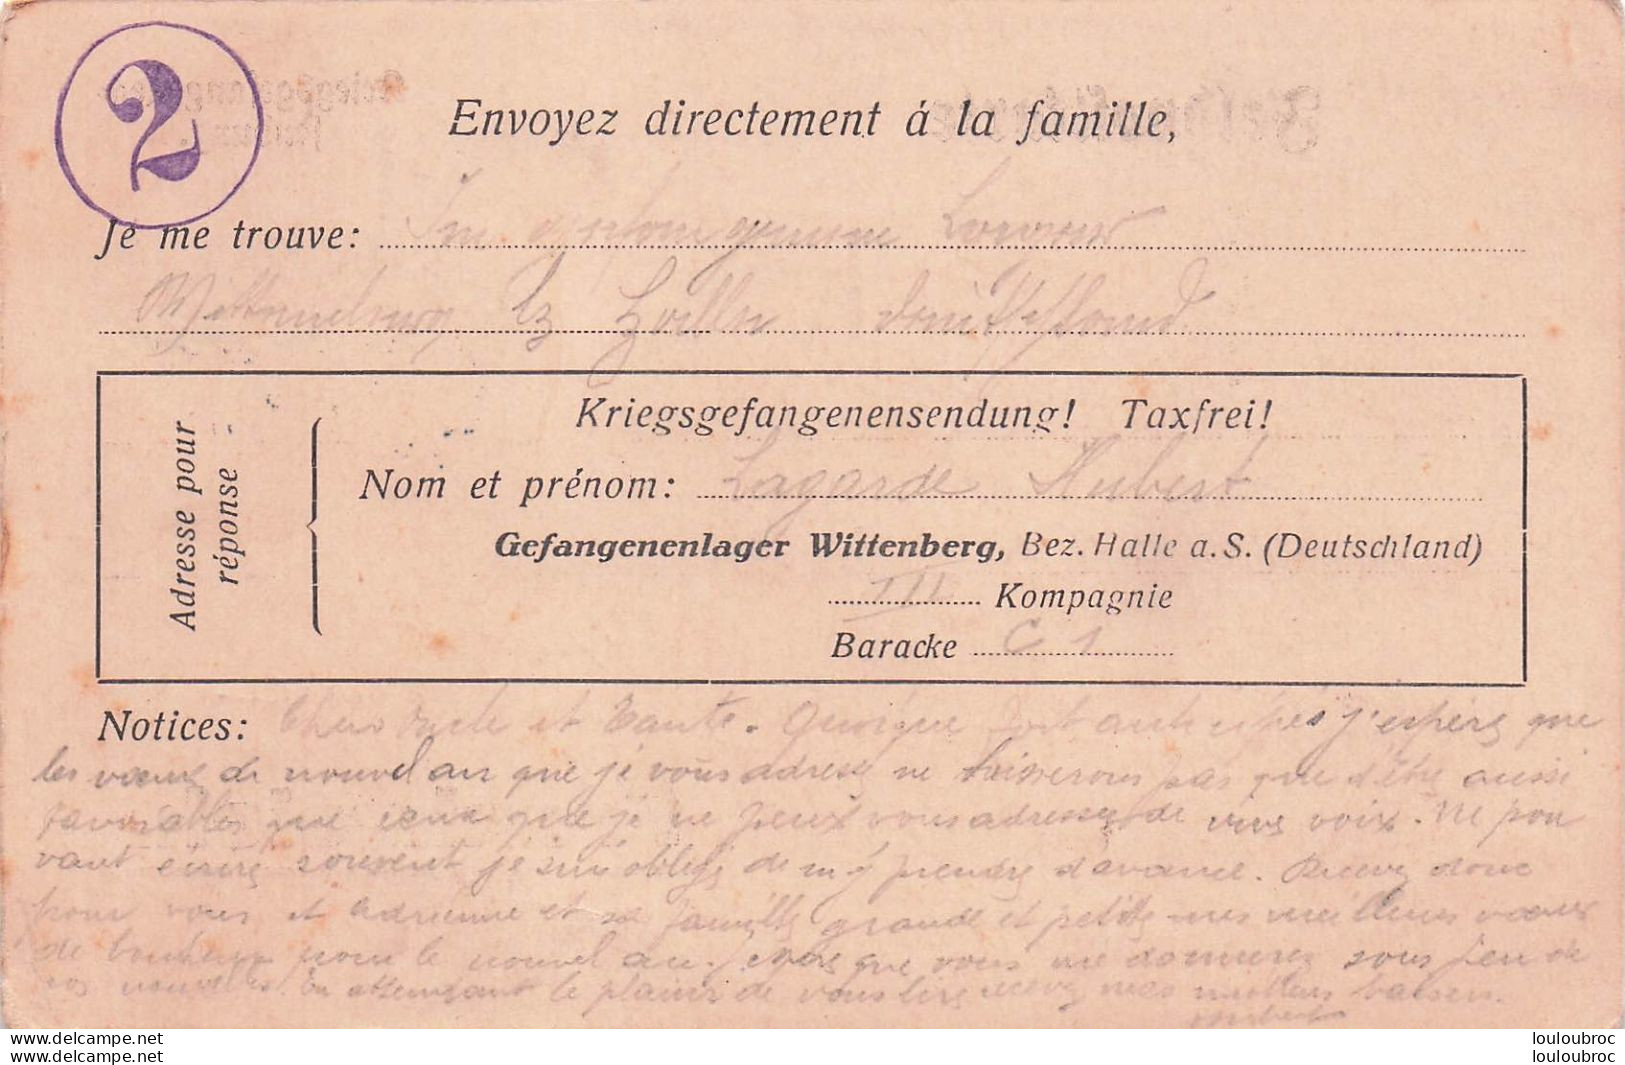 2
Envoyez directement á la famille,
Je me trouve:
Kriegsgefangenensendung! Taxfrei!
Adresse pour
réponse
Nom et prénom: Lagarde Hubert
Gefangenenlager Wittenberg, Bez. Halle a. S. (Deutschland)
III Kompagnie
Baracke C 1
Notices: et Tante. Quoique j'espère que
les voeux de nouvel an que je vous adresse ne pas que d'être aussi
favorables que ceux que je ne peux vous adresser de vive voix. Ne pou
vant écrire souvent je suis obligé de m'y prendre d'avance. Recevez donc
pour vous et Adrienne et sa famille grande et petite mes meilleurs voeux
de bonheur pour le nouvel an. J'espère que vous me donnerez sous peu de
vos nouvelles. En attendant le plaisir de vous lire recevez mes meilleurs baisers.
Hubert
louloubroc
louloubroc
www.delcampe.net
www.delcampe.net